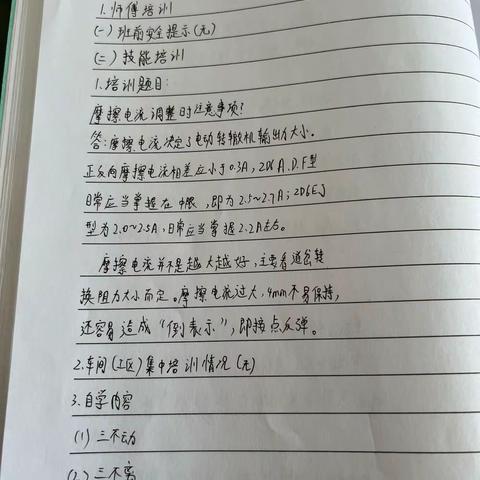 1.师傅培训
(一)班前安全提示(无)
(二)技能培训
1.培训题目:
摩擦电流调整时注意事项?
答:摩擦电流决定了电动转辙机输出力大小。
正反向摩擦电流相差应小于0.3A,ZD6A.D.F型
日常应当掌握在中限,即为2.5~2.7A;ZD6E.J
型为2.0~2.5A,日常应当掌握2.2A左右。
摩擦电流并不是越大越好,主要看道岔转
换阻力大小而定。摩擦电流过大,4mm不易保持,
还容易造成“倒表示”,即接点反弹。
2.车间(工区)集中培训情况(无)
3.自学内容
(1)三不动
(2)三不离